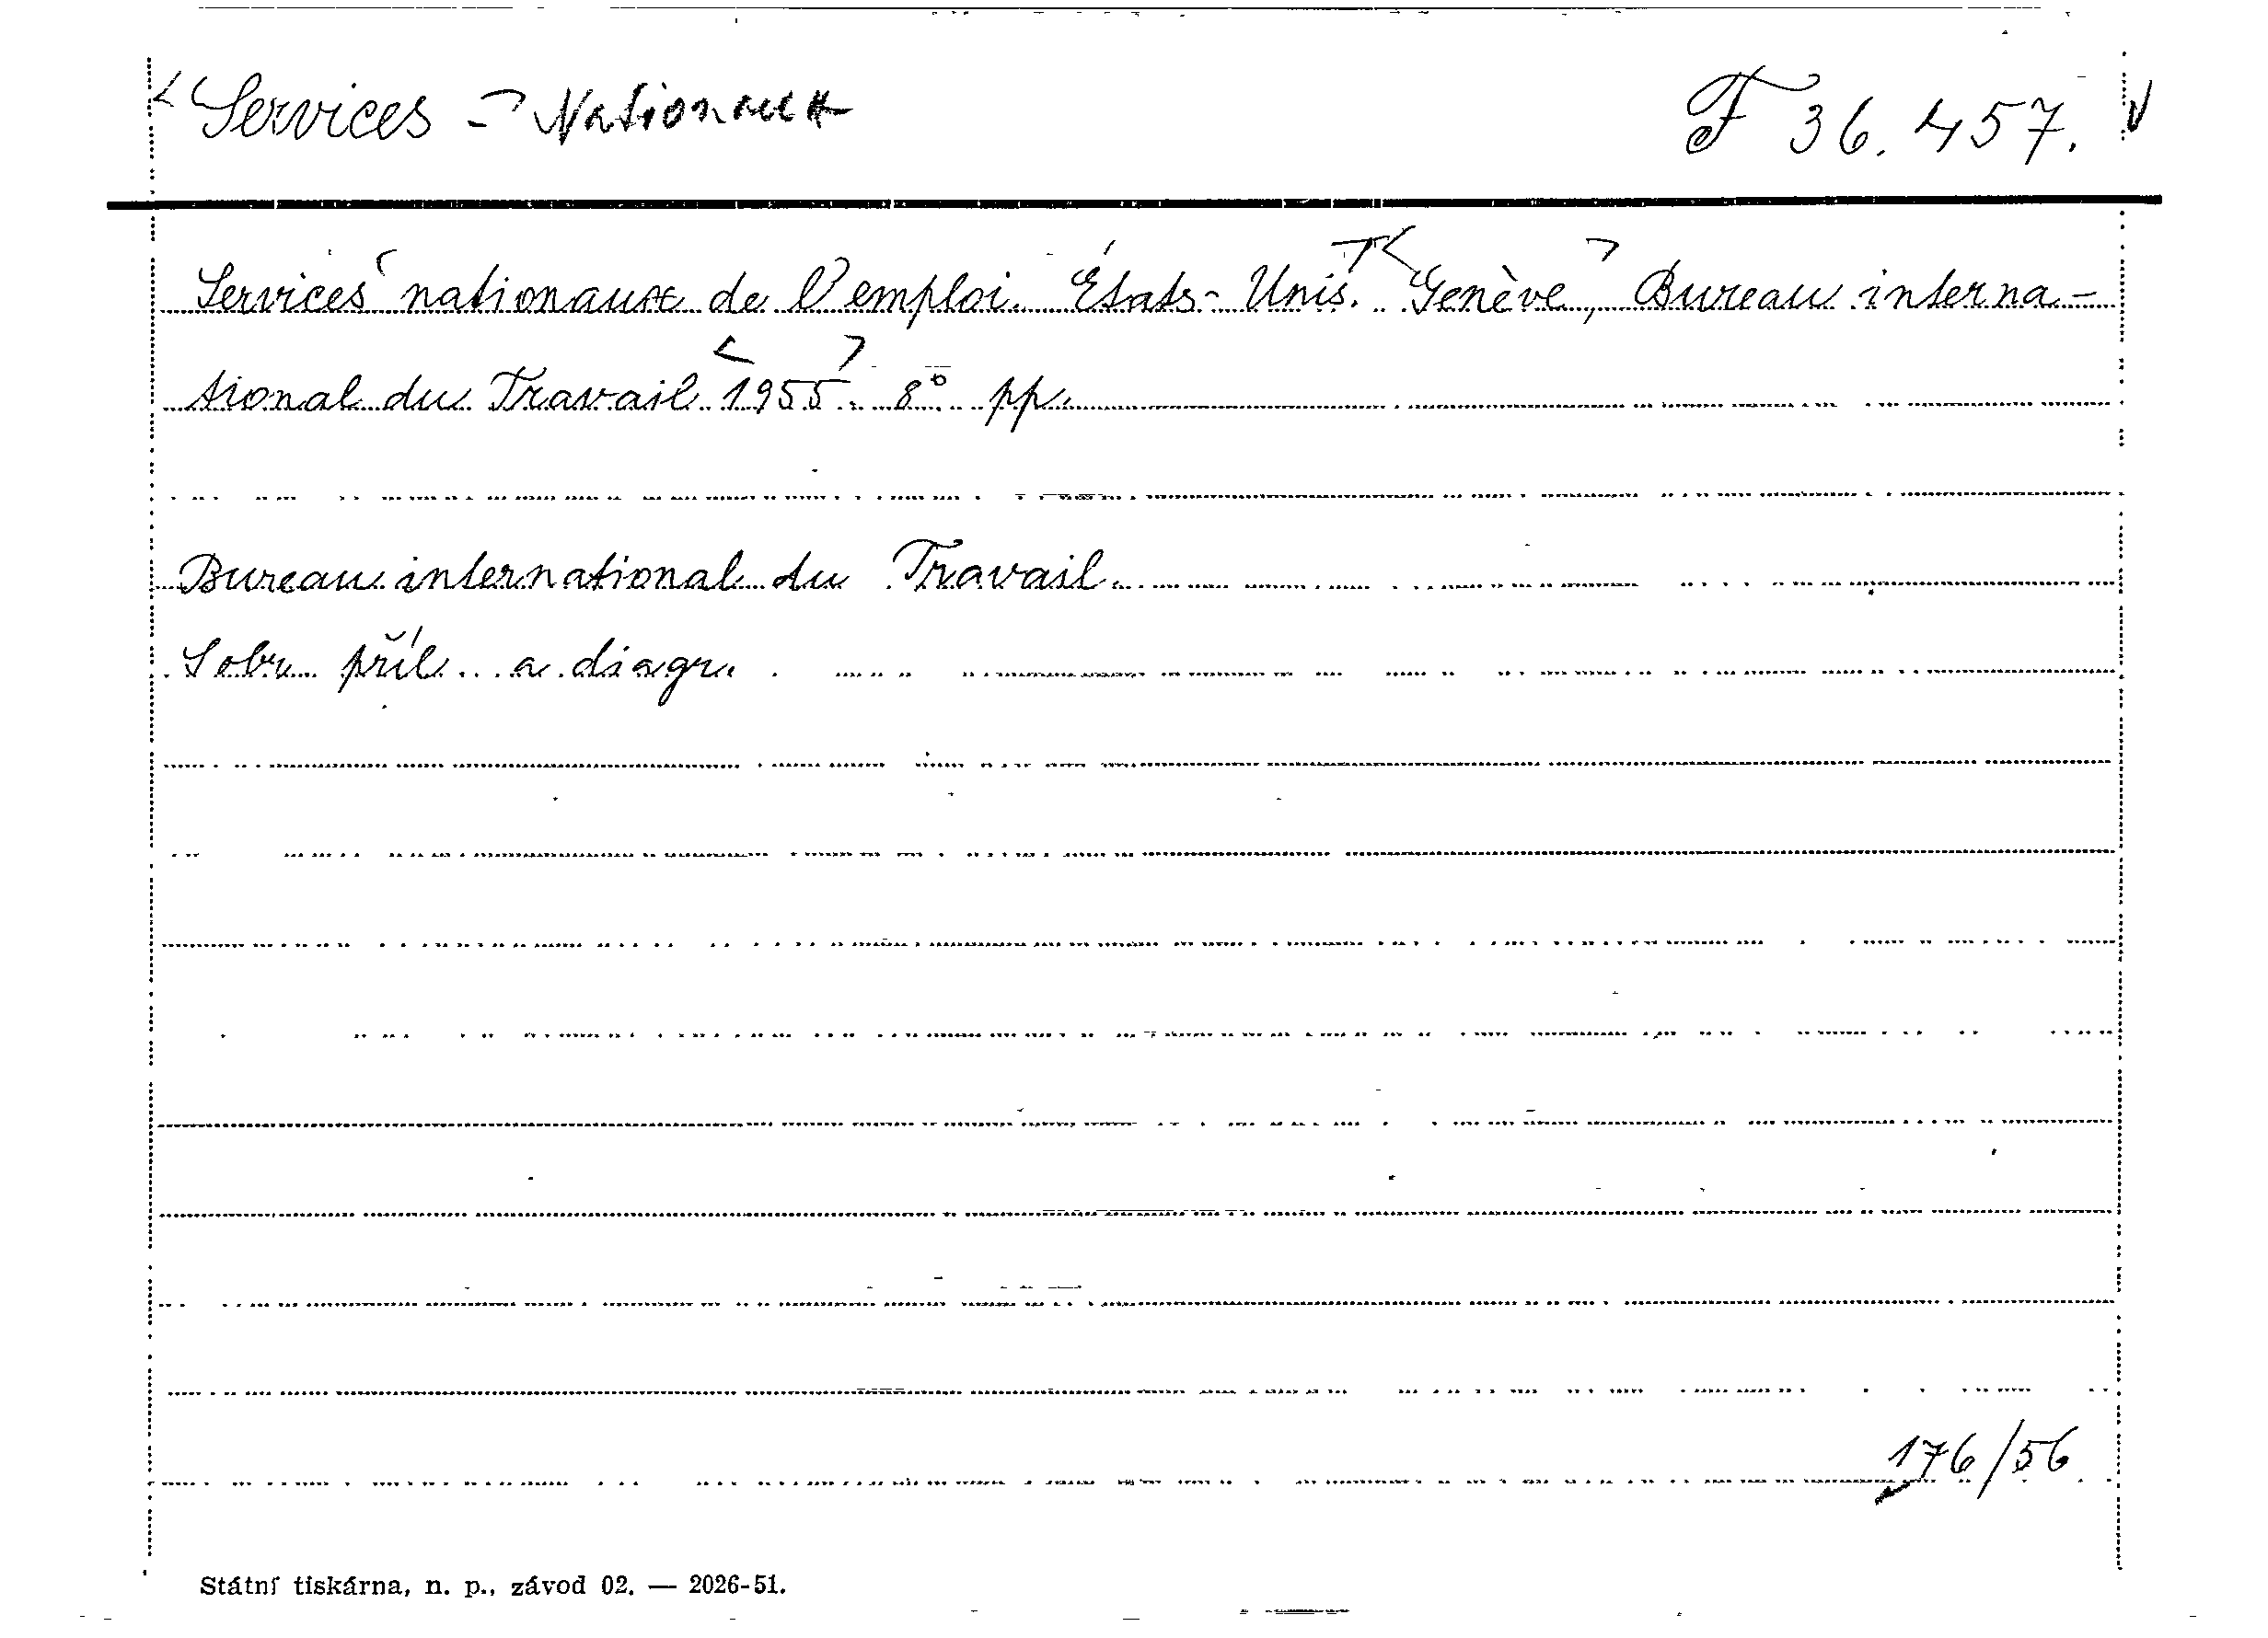 Services - Nationaux F 36.457.
Services nationaux de l'emploi. États-Unis. Genève, Bureau interna-
tional du Travail 1955. 8° pp.
Bureau international du Travail.
S obr. příl. a diagr.
176/56
Státní tiskárna, n. p., závod 02. — 2026-51.